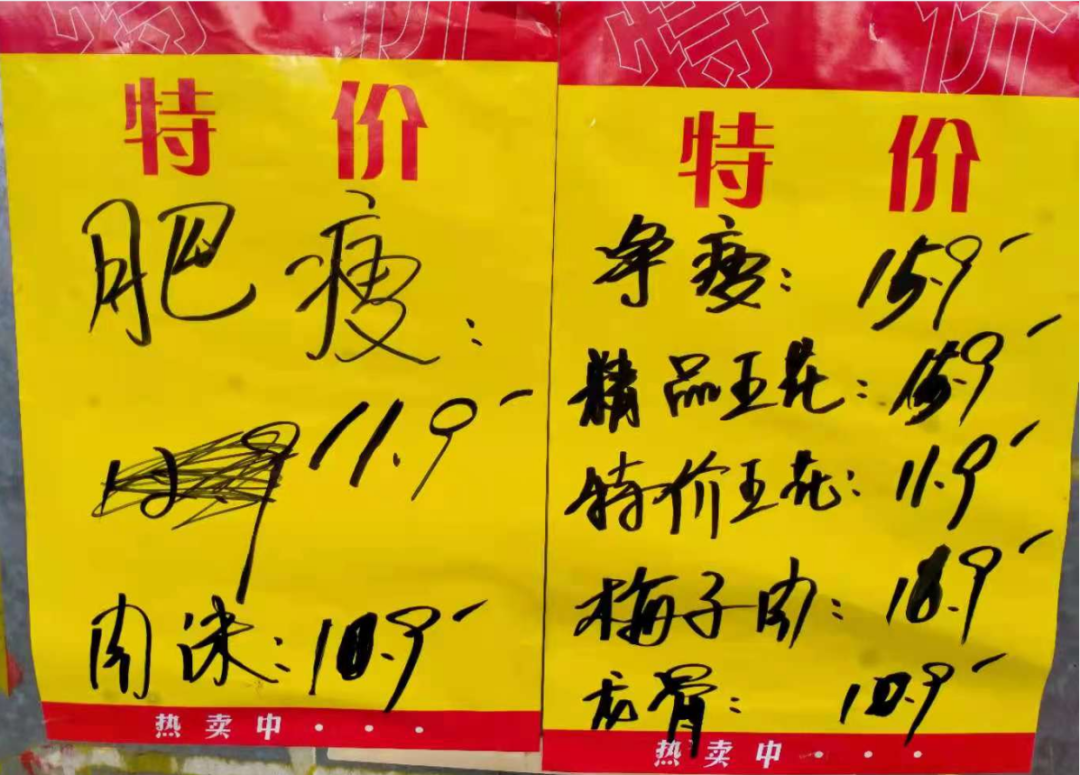 特价
特价
肥瘦:
11.9
肉沫:10.9
热卖中...
特价
特价
净瘦:15.9
精品五花:15.9
特价五花:11.9
梅子肉:16.9
龙骨:10.9
热卖中...